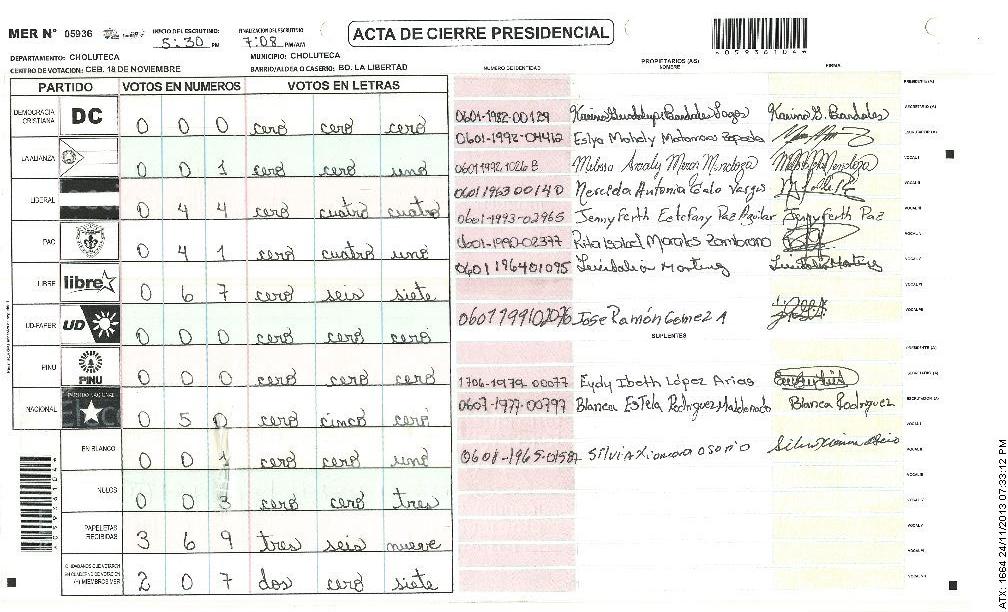 MER N° 05936
INICIO DEL ESCRUTINIO: 5:30 PM
FINALIZACION DEL ESCRUTINIO: 7:08 PM/AM
ACTA DE CIERRE PRESIDENCIAL
*05936104*
DEPARTAMENTO: CHOLUTECA
MUNICIPIO: CHOLUTECA
CENTRO DE VOTACION: CEB. 18 DE NOVIEMBRE
BARRIO/ALDEA O CASERIO: BO. LA LIBERTAD
NUMERO DE IDENTIDAD
PROPIETARIOS (AS)
NOMBRE
FIRMA
PARTIDO VOTOS EN NUMEROS VOTOS EN LETRAS
DEMOCRACIA CRISTIANA DC 0 0 0 cero cero cero
LA ALIANZA 0 0 1 cero cero uno
LIBERAL 0 4 4 cero cuatro cuatro
PAC 0 4 1 cero cuatro uno
LIBRE libre 0 6 7 cero seis siete
UD-FAPER UD 0 0 0 cero cero cero
PINU PINU 0 0 0 cero cero cero
NACIONAL 0 5 0 cero cinco cero
EN BLANCO 0 0 1 cero cero uno
NULOS 0 0 3 cero cero tres
PAPELETAS RECIBIDAS 3 6 9 tres seis nueve
(+) MIEMBROS MER 2 0 7 dos cero siete
PRESIDENTE (A)
SECRETARIO (A)
0601-1982-00129 Karina Guadalupe Bardales Lagos Karina G. Bardales
0601-1992-04412 Matamoros Zepeda
VOCAL I
0601 1992 1026 8 Melissa Meza Mendoza
VOCAL II
0601 1963 00140 Mercida Antonia Galo Vargas
VOCAL III
0601-1993-02965 Jenny Ferth Estefany Paz Aguilar Jenny Ferth Paz
VOCAL IV
0601-1990-02377 Rita Isabel Morales Zambrano
VOCAL V
0601196401095
0601199102076 Jose Ramón Gomez A
SUPLENTES
PRESIDENTE (A)
1706-1979-00077 Eydy Ibeth López Arias
0607-1977-00797 Blanca Estela Rodriguez Maldonado Blanca Rodriguez
0601-1965-01587 Silvia Xiomara Osorio
ATX: 1664 24/11/2013 07:33:12 PM